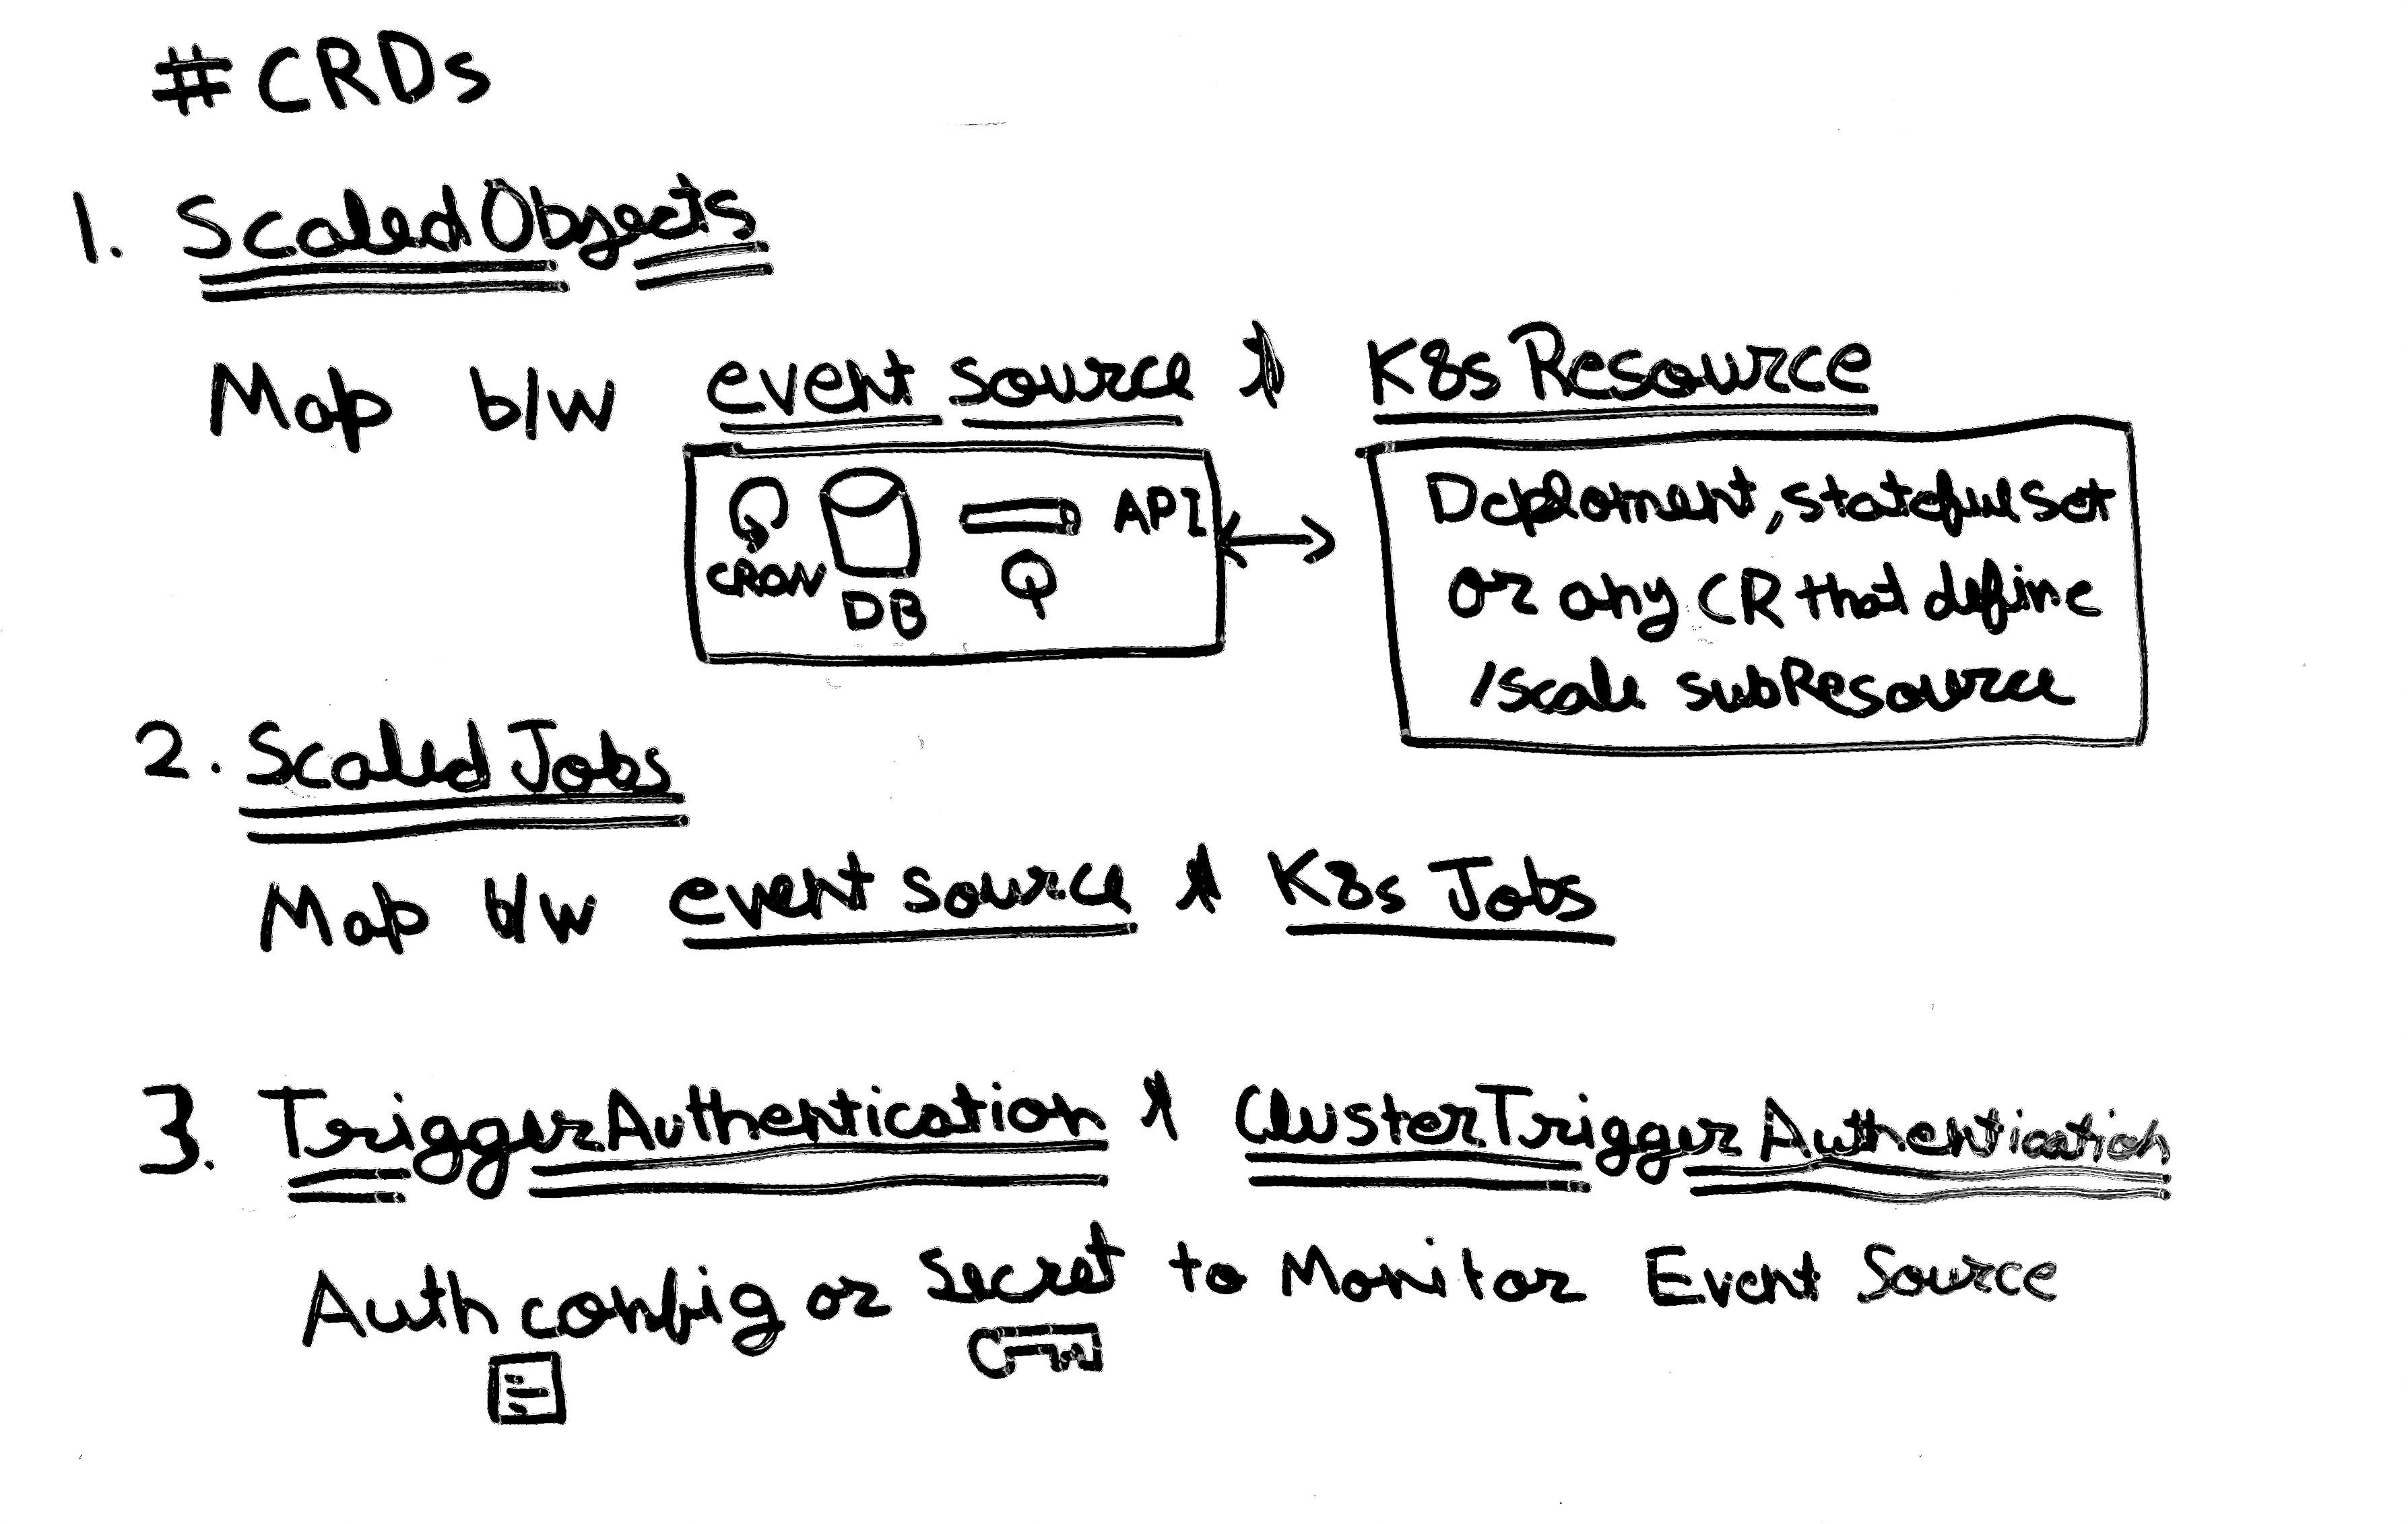 # CRDs
1. ScaledObjects
Map b/w event source & K8s Resource
CRON DB Q API
Deploment, statefulset
or any CR that define
/scale subResource
2. Scaled Jobs
Map b/w event source & K8s Jobs
3. TriggerAuthentication & ClusterTriggerAuthentication
Auth config or Secret to Monitor Event Source